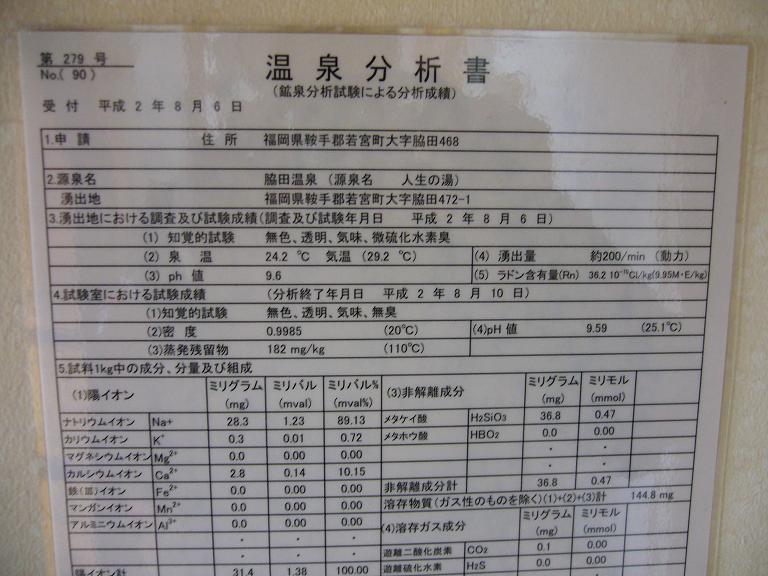 第 279 号
No.( 90 )
温泉分析書
(鉱泉分析試験による分析成績)
受付 平成 2 年 8 月 6 日
1.申 請 住 所 福岡県鞍手郡若宮町大字脇田468
2.源泉名 脇田温泉 (源泉名 人生の湯)
湧出地 福岡県鞍手郡若宮町大字脇田472-1
3.湧出地における調査及び試験成績(調査及び試験年月日 平成 2 年 8 月 6 日)
(1) 知覚的試験 無色、透明、気味、微硫化水素臭
(2) 泉 温 24.2 ℃ 気温 (29.2 ℃) (4) 湧出量 約200/min (動力)
(3) ph 値 9.6 (5) ラドン含有量(Rn) 36.2 10⁻¹⁰Ci/kg(9.95M・E/kg)
4.試験室における試験成績 (分析終了年月日 平成 2 年 8 月 10 日)
(1)知覚的試験 無色、透明、気味、無臭
(2)密 度 0.9985 (20℃) (4)pH 値 9.59 (25.1℃)
(3)蒸発残留物 182 mg/kg (110℃)
5.試料1kg中の成分、分量及び組成
(1)陽イオン ミリグラム (mg) ミリバル (mval) ミリバル% (mval%) (3)非解離成分 ミリグラム (mg) ミリモル (mmol)
ナトリウムイオン Na+ 28.3 1.23 89.13 メタケイ酸 H₂SiO₃ 36.8 0.47
カリウムイオン K⁺ 0.3 0.01 0.72 メタホウ酸 HBO₂ 0.0 0.00
マグネシウムイオン Mg²⁺ 0.0 0.00 0.00 ・ ・
カルシウムイオン Ca²⁺ 2.8 0.14 10.15 ・ ・
鉄(Ⅱ)イオン Fe²⁺ 0.0 0.00 0.00 非解離成分計 36.8 0.47
マンガンイオン Mn²⁺ 0.0 0.00 0.00 溶存物質(ガス性のものを除く)(1)+(2)+(3)計 144.8 mg
アルミニウムイオン Al³⁺ 0.0 0.00 0.00 (4)溶存ガス成分 ミリグラム (mg) ミリモル (mmol)
・ ・ ・ 遊離二酸化炭素 CO₂ 0.1 0.00
・ ・ ・ 遊離硫化水素 H₂S 0.0 0.00
陽イオン計 31.4 1.38 100.00